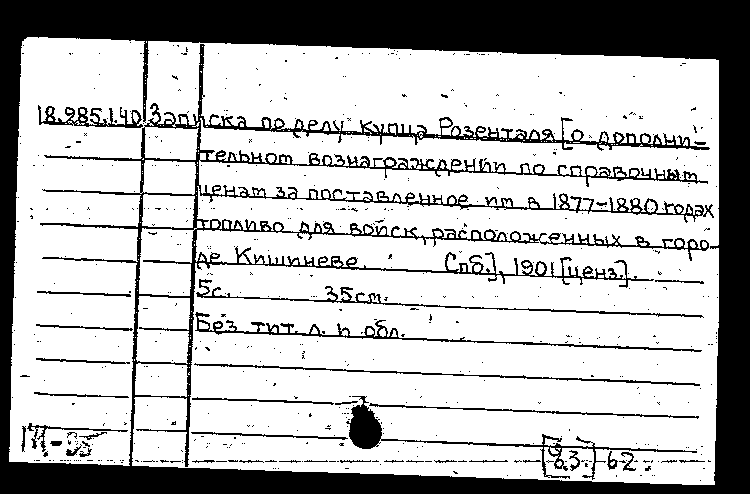 18.985.1.40 Записка по делу купца Розенталя [о дополни-
тельном вознаграждении по справочным
ценам за поставленное им в 1877-1880 годах
топливо для войск, расположенных в горо-
де Кишиневе. Спб.], 1901 [ценз.].
5с. 35см.
Без тит. л. и обл.
62.